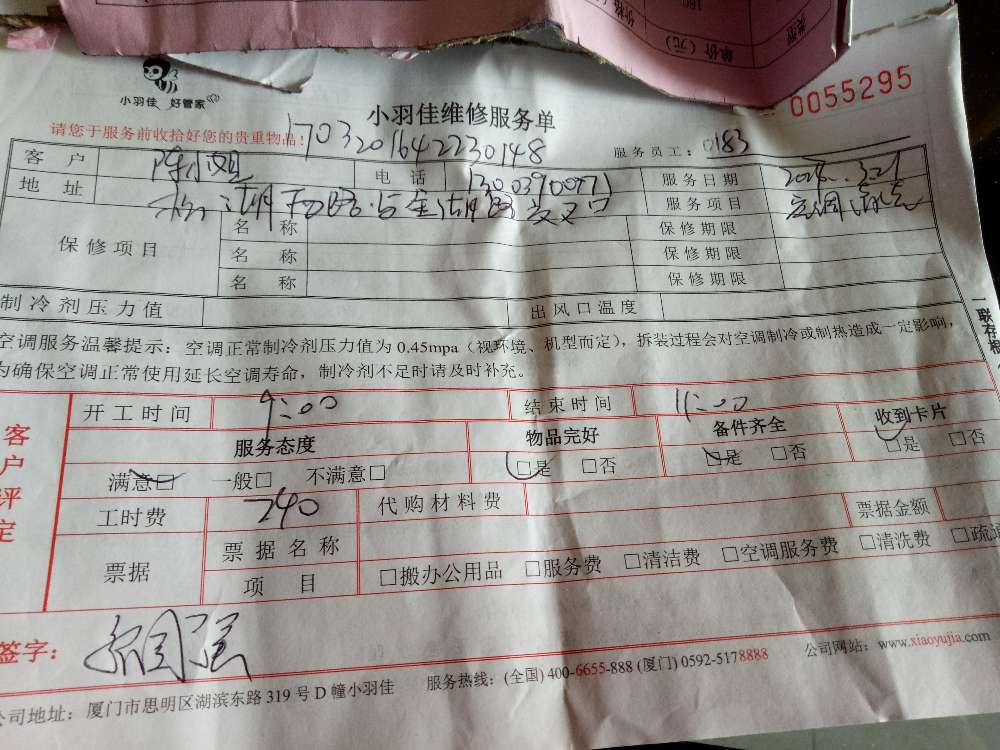 类别
180
价格（
单价（元）
小羽佳 好管家
小羽佳维修服务单
0055295
请您于服务前收拾好您的贵重物品！
17032016422230148
服务员工：0183
客户 陈小姐 电话 服务日期
地址 服务项目 空调清洗
保修项目 名称 保修期限
名称 保修期限
名称 保修期限
制冷剂压力值 出风口温度
一联存根
空调服务温馨提示：空调正常制冷剂压力值为 0.45mpa（视环境、机型而定），拆装过程会对空调制冷或制热造成一定影响，
为确保空调正常使用延长空调寿命，制冷剂不足时请及时补充。
客户评定
开工时间 9:00 结束时间 11:00
服务态度 物品完好 备件齐全 收到卡片
满意□ 一般□ 不满意□ □是 □否 □是 □否 □是 □否
工时费 240 代购材料费 票据金额
票据 票据名称
项目 □搬办公用品 □服务费 □清洁费 □空调服务费 □清洗费 □疏通
签字：
公司地址：厦门市思明区湖滨东路 319 号 D 幢小羽佳 服务热线：(全国) 400-6655-888 (厦门) 0592-5178888 公司网站：www.xiaoyujia.com